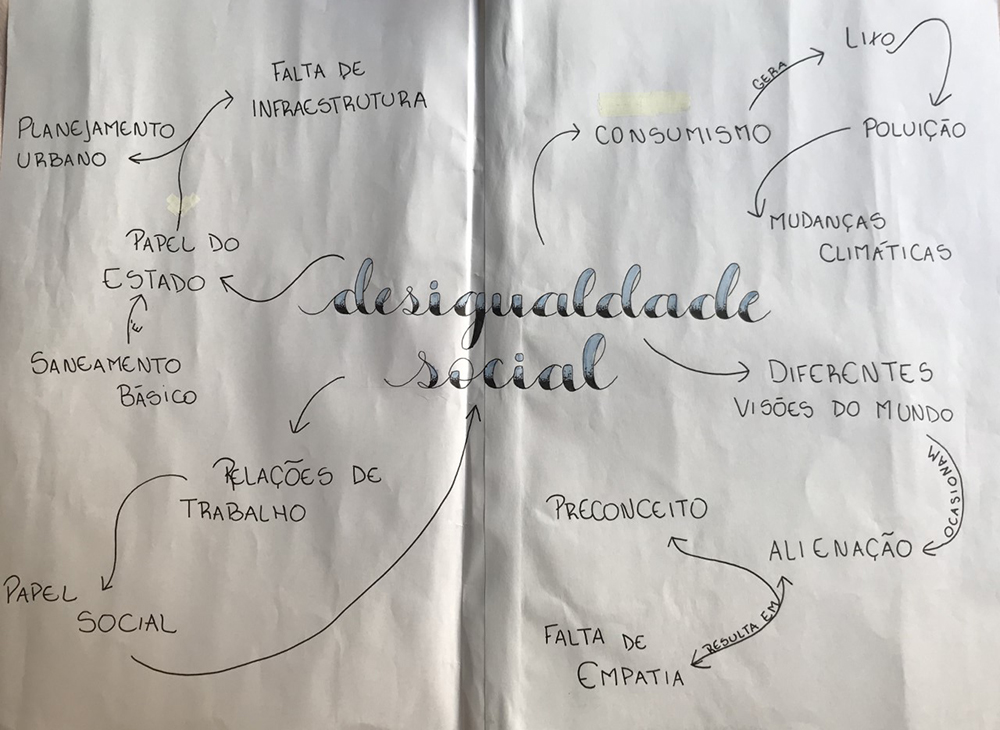 FALTA DE
INFRAESTRUTURA
PLANEJAMENTO
URBANO
PAPEL DO
ESTADO
É
SANEAMENTO
BÁSICO
desigualdade
social
CONSUMISMO
GERA
LIXO
POLUIÇÃO
MUDANÇAS
CLIMÁTICAS
DIFERENTES
VISÕES DO MUNDO
OCASIONAM
ALIENAÇÃO
RESULTA EM
PRECONCEITO
FALTA DE
EMPATIA
RELAÇÕES DE
TRABALHO
PAPEL
SOCIAL